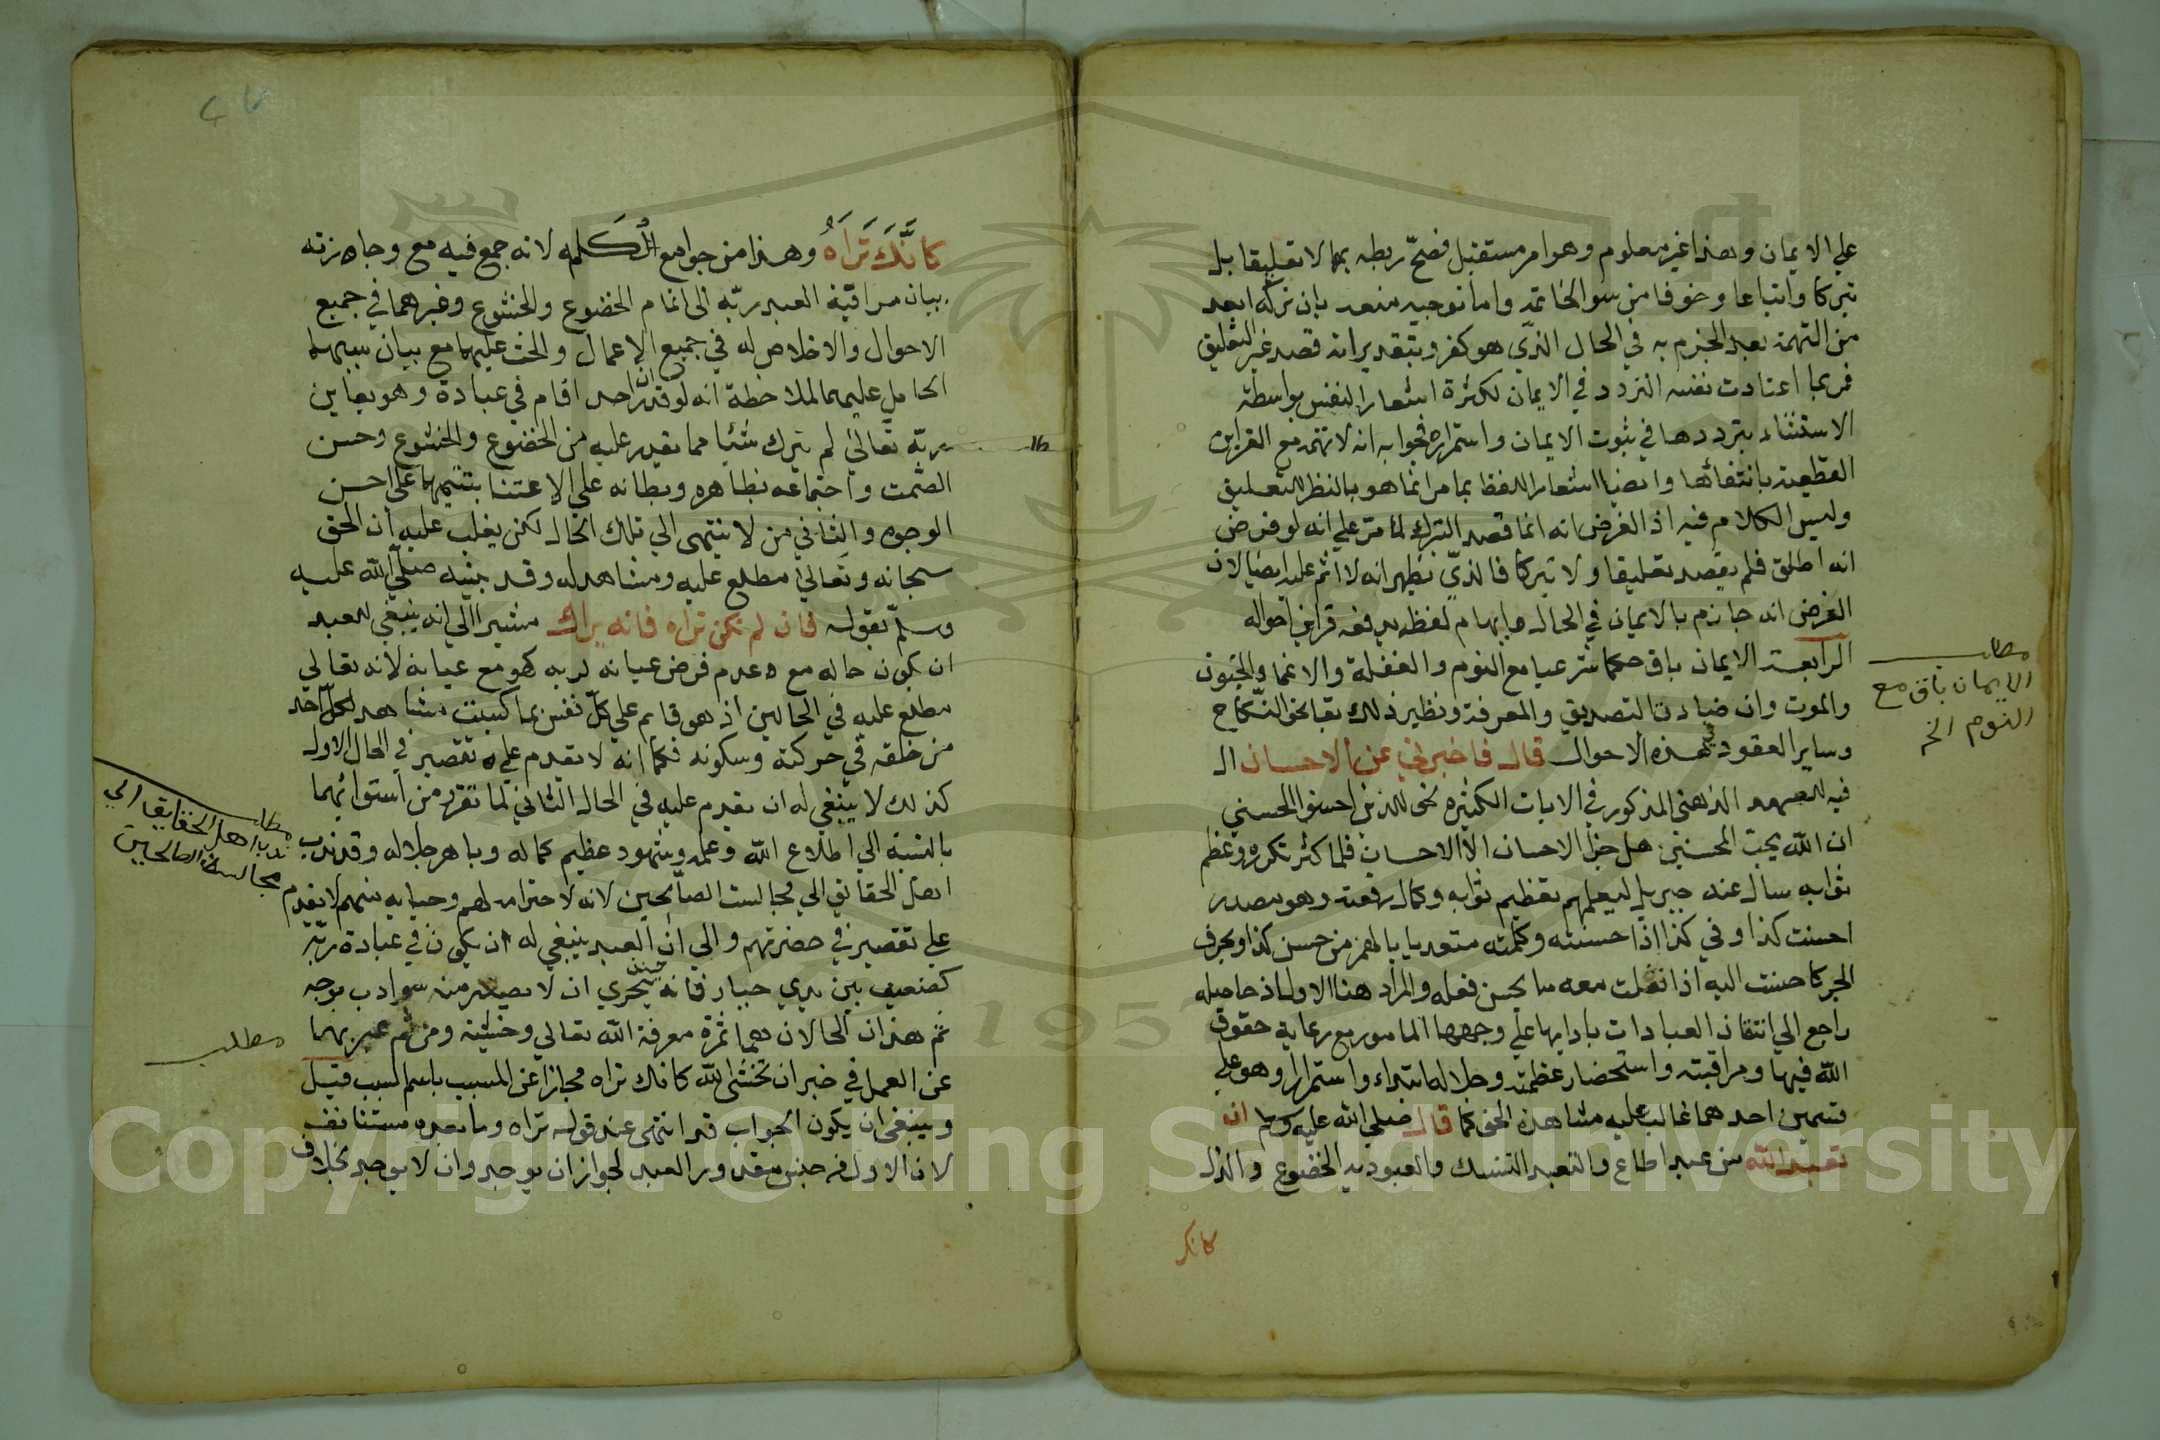 علي الايمان وهذا غير معلوم وهو امر مستقبل فصحّ ربطه بها لا تعليقا بل
تبركا واتباعا وخوفا من سوالخاتمة واما توجيه منعه بان تركه ابعد
من التهمة بعد الجزم به في الحال الذي هو كفر وبتقدير انه قصد غير التعليق
فربما اعتادت نفسه التردد في الايمان لكثرة اشعار النفس بواسطة
الاستثناء بترددها في ثبوت الايمان واستمراره فجوابه انه لا تهمة مع القراين
القطعية بانتفائها وايضا اشعار اللفظ بما مر انما هو بالنظر للتعليق
وليس الكلام فيه اذ الغرض انه انما قصد التبرك لما مرّ علي انه لو فرض
انه اطلق فلم يقصد تعليقا ولا تبركا فالذي يظهر انه لا اثم عليه ايضا لان
الغرض انه جازم بالايمان في الحال وايهام لفظه يدفعه قراين احواله
الرابعة الايمان باق حكما شرعيا مع النوم والغفلة والاغما والجنون
والموت وان ضادت التصديق والمعرفة ونظير ذلك بقا نحو النكاح
وساير العقود في هذه الاحوال قال فاخبرني عن الاحسان ال
فيه للعهد الذهني المذكور في الايات الكثيرة نحو للذين احسنوا الحسني
ان الله يحب المحسنين هل جزا الاحسان الا الاحسان فلما كثر تكرره وعظم
ثوابه سال عنه جبريل ليعلمهم بعظيم ثوابه وكمال رفعته وهو مصدر
احسنت كذا وفي كذا اذا حسنته وكملته متعديا بالهمز من حسن كذا وبحرف
الجر كاحسنت اليه اذا فعلت معه ما يحسن فعله والمراد هنا الاول اذ حاصله
راجع الي اتقان العبادات بادايها علي وجهها المامور مع رعاية حقوق
الله فيها ومراقبته واستحضار عظمته وجلاله ابتداء واستمرارا وهو علي
قسمين احدهما غالب عليه مشاهدة الحق كما قال صلي الله عليه وسلم ان
تعبد الله من عبد اطاع والتعبد التنسك والعبودية الخضوع والذل
كانك
مطلب
الايمان باق مع
النوم الخ
كَانَّكَ تَرَاهُ وهذا من جوامع الكلم لانه جمع فيه مع وجازته
بيان مراقبة العبد ربّه في اتمام الخضوع والخشوع وغيرهما في جميع
الاحوال والاخلاص له في جميع الاعمال والحث عليهما مع بيان سببهما
الحامل عليهما لملاحظة انه لو قدر ان احدا قام في عبادة وهو يعاين
ربّه تعالي لم يترك شئيا مما يقدر عليه من الخضوع والخشوع وحسن
الصّمت واجتماعه بظاهره وبطانه علي الاعتنا بتتميمها علي احسن
الوجوه والثاني من لا ينتهي الي تلك الحال لكن يغلب عليه ان الحق
سبحانه وتعالي مطلع عليه ومشاهد له وقد بينه صلي الله عليه
وسلم بقوله فان لم تكن تراه فانه يراك مشيرا الي انه ينبغي للعبد
ان يكون حاله مع عدم فرض عيانه لربه كهو مع عيانه لانه تعالي
مطلع عليه في الحالين اذ هو قايم علي كلّ نفس بما كسبت مشاهد لكل احد
من خلقه في حركته وسكونه فكما انه لا يقدم علي تقصير في الحال الاول
كذلك لا ينبغي له ان يقدم عليه في الحال الثاني لما تقرر من استوائهما
بالنسبة الي اطلاع الله وعلمه وشهود عظيم كماله وباهر جلاله وقد ندب
اهل الحقايق الي مجالست الصالحين لانه لاحترامه لهم وحيايه منهم لا يقدم
علي تقصير في حضرتهم والي ان العبد ينبغي له ان يكون في عبادة ربّه
كضعيف بين يدي جبار فانه حينئذ يتحري ان لا يصدر منه سوادب بوجه
ثم هذان الحالان هما ثمرة معرفة الله تعالي وخشيته ومن ثم عبر بهما
عن العمل في خبر ان تخشي الله كانك تراه مجازا عن المسبب باسم السبب قيل
وينبغي ان يكون الجواب قد انتهي عند قوله تراه وما بعده مستانفه
لان الاول في حيز مقدور العبد لجواز ان يوجد وان لا يوجد بخلاف
مطلب
ندب اهل الحقايقا الي
مجالست الصالحين
مطلب
Copyright © King Saud University
1957